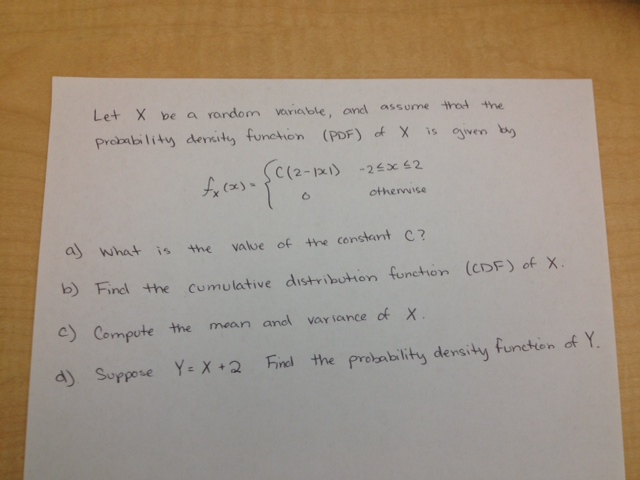 Let X be a random variable, and assume that the
probability density function (PDF) of X is given by
fx(x) = { C(2-|x|) -2≤x≤2
0 otherwise
a) What is the value of the constant C?
b) Find the cumulative distribution function (CDF) of X.
c) Compute the mean and variance of X.
d) Suppose Y = X + 2 Find the probability density function of Y.